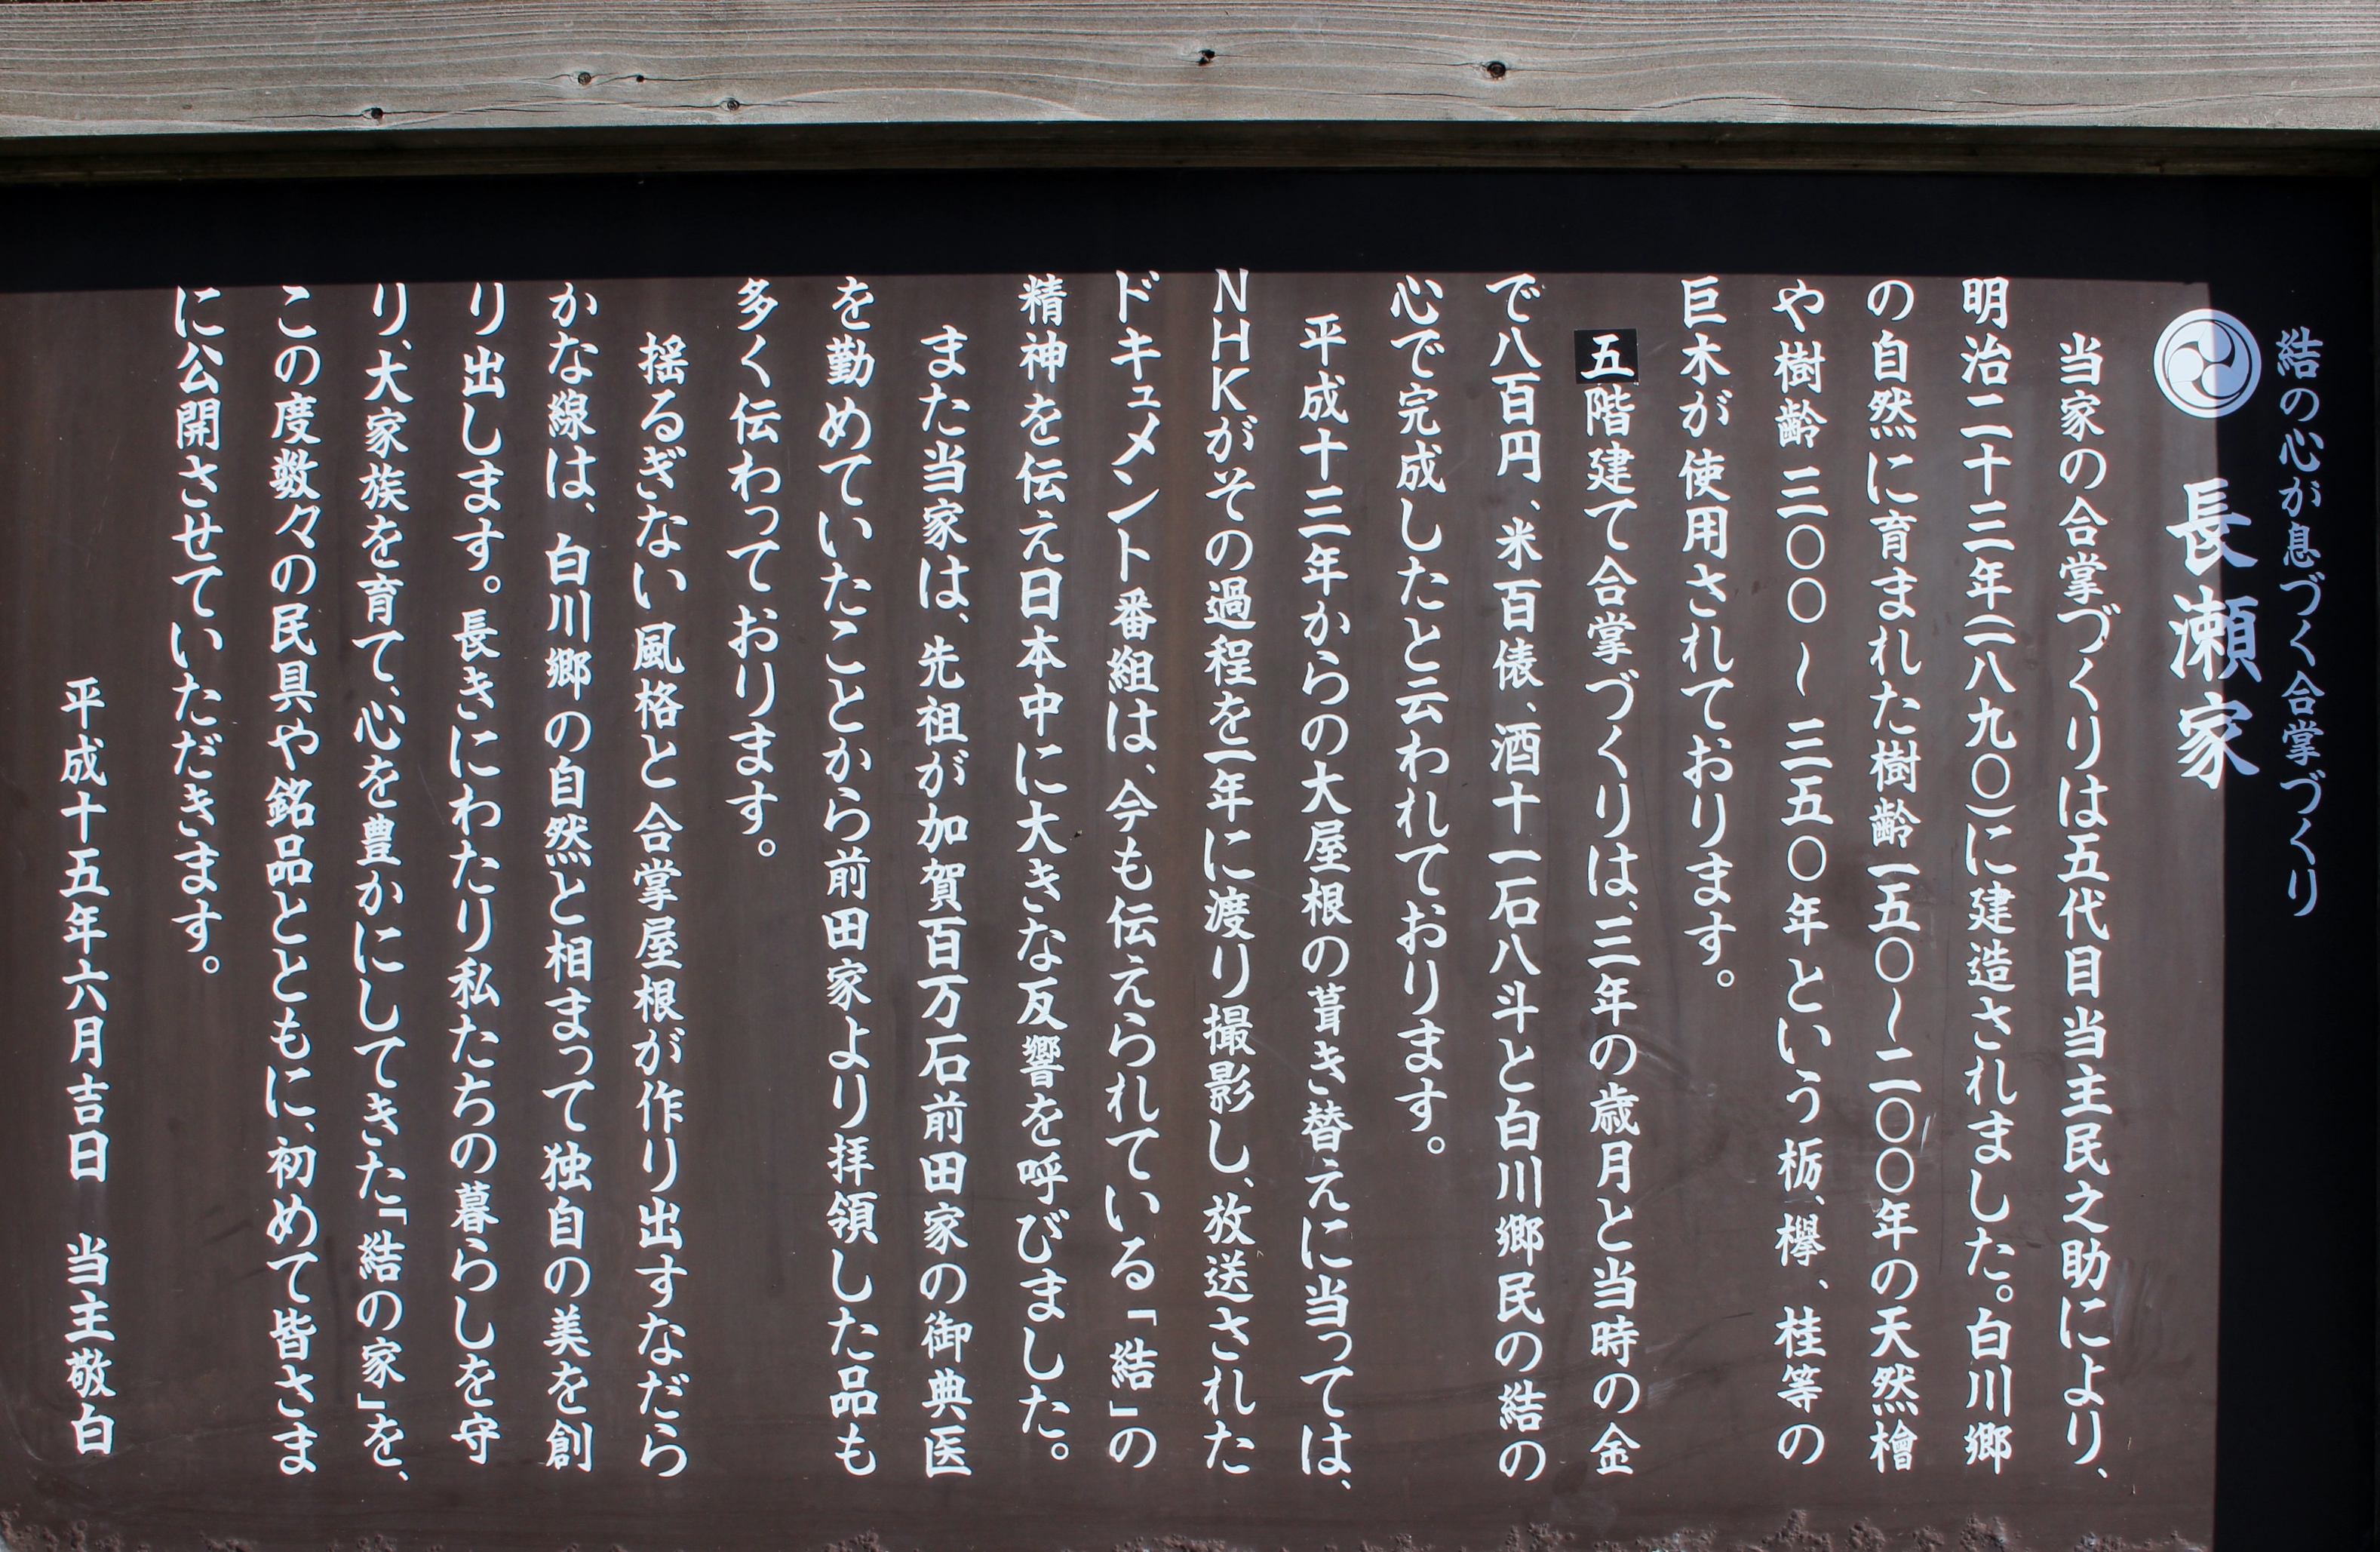 結の心が息づく合掌づくり
長瀬家
当家の合掌づくりは五代目当主民之助により、
明治二十三年(一八九〇)に建造されました。白川郷
の自然に育まれた樹齢一五〇～二〇〇年の天然檜
や樹齢三〇〇～三五〇年という栃、欅、桂等の
巨木が使用されております。
五階建て合掌づくりは、三年の歳月と当時の金
で八百円、米百俵、酒十一石八斗と白川郷民の結の
心で完成したと云われております。
平成十三年からの大屋根の葺き替えに当っては、
NHKがその過程を一年に渡り撮影し、放送された
ドキュメント番組は、今も伝えられている「結」の
精神を伝え日本中に大きな反響を呼びました。
また当家は、先祖が加賀百万石前田家の御典医
を勤めていたことから前田家より拝領した品も
多く伝わっております。
揺るぎない風格と合掌屋根が作り出すなだら
かな線は、白川郷の自然と相まって独自の美を創
り出します。長きにわたり私たちの暮らしを守
り、大家族を育て、心を豊かにしてきた「結の家」を、
この度数々の民具や銘品とともに、初めて皆さま
に公開させていただきます。
平成十五年六月吉日　当主敬白